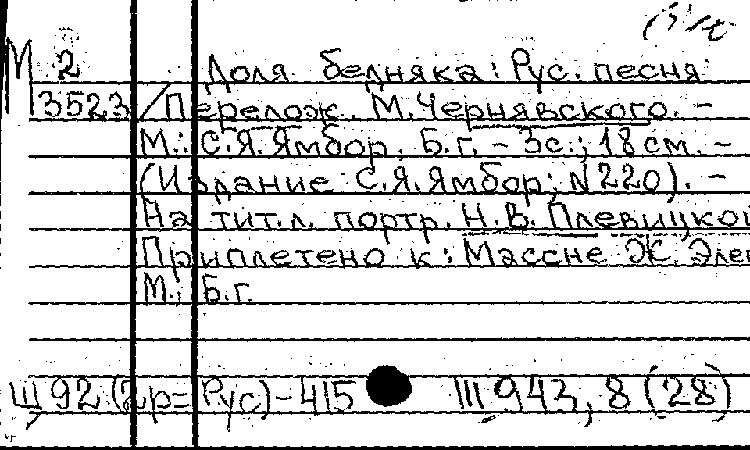 М 2 Доля бедняка: Рус. песня
13523 / Перелож. М. Чернявского. –
М.: С.Я. Ямбор. Б.г. – 3с.; 18 см. –
(Издание С.Я. Ямбор; N 220). –
На тит.л. портр. Н.В. Плевицкой
Приплетено к: Массне Ж. Элег
М.; Б.г.
Щ 92 (2р=Рус) - 415 Щ 943, 8 (28)